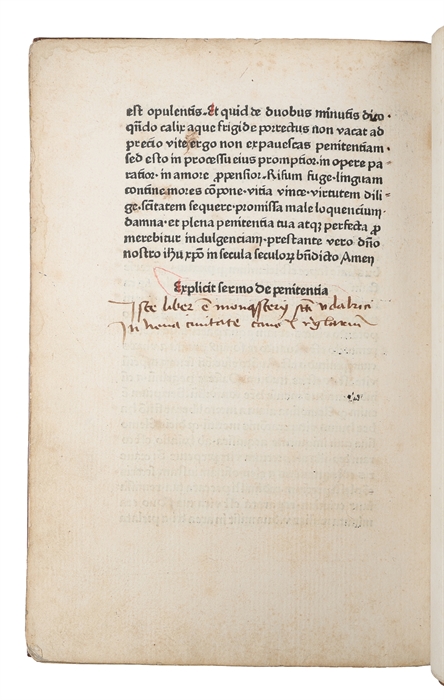 est opulentis. Et quid de duobus minutis dico
qñdo calix aque frigide porrectus non vacat ad
precio vite ergo non expauescas penitentiam.
sed esto in processu eius promptior. in opere pa-
ratior. in amore ꝓpensior. Risum fuge. linguam
contine. mores cõpone. vitia vince. virtutem dili-
ge. sc̃itatem sequere. promissa male loquencium
damna. et plena penitentia tua atqꝫ perfecta ꝓ
merebitur indulgenciam. prestante vero dño
nostro ihũ xp̃o in secula seculoꝝ bñdicto Amen
Explicit sermo de penitentia
Iste liber ē monasterij sc̃ti vdalrici
In noua ciuitate